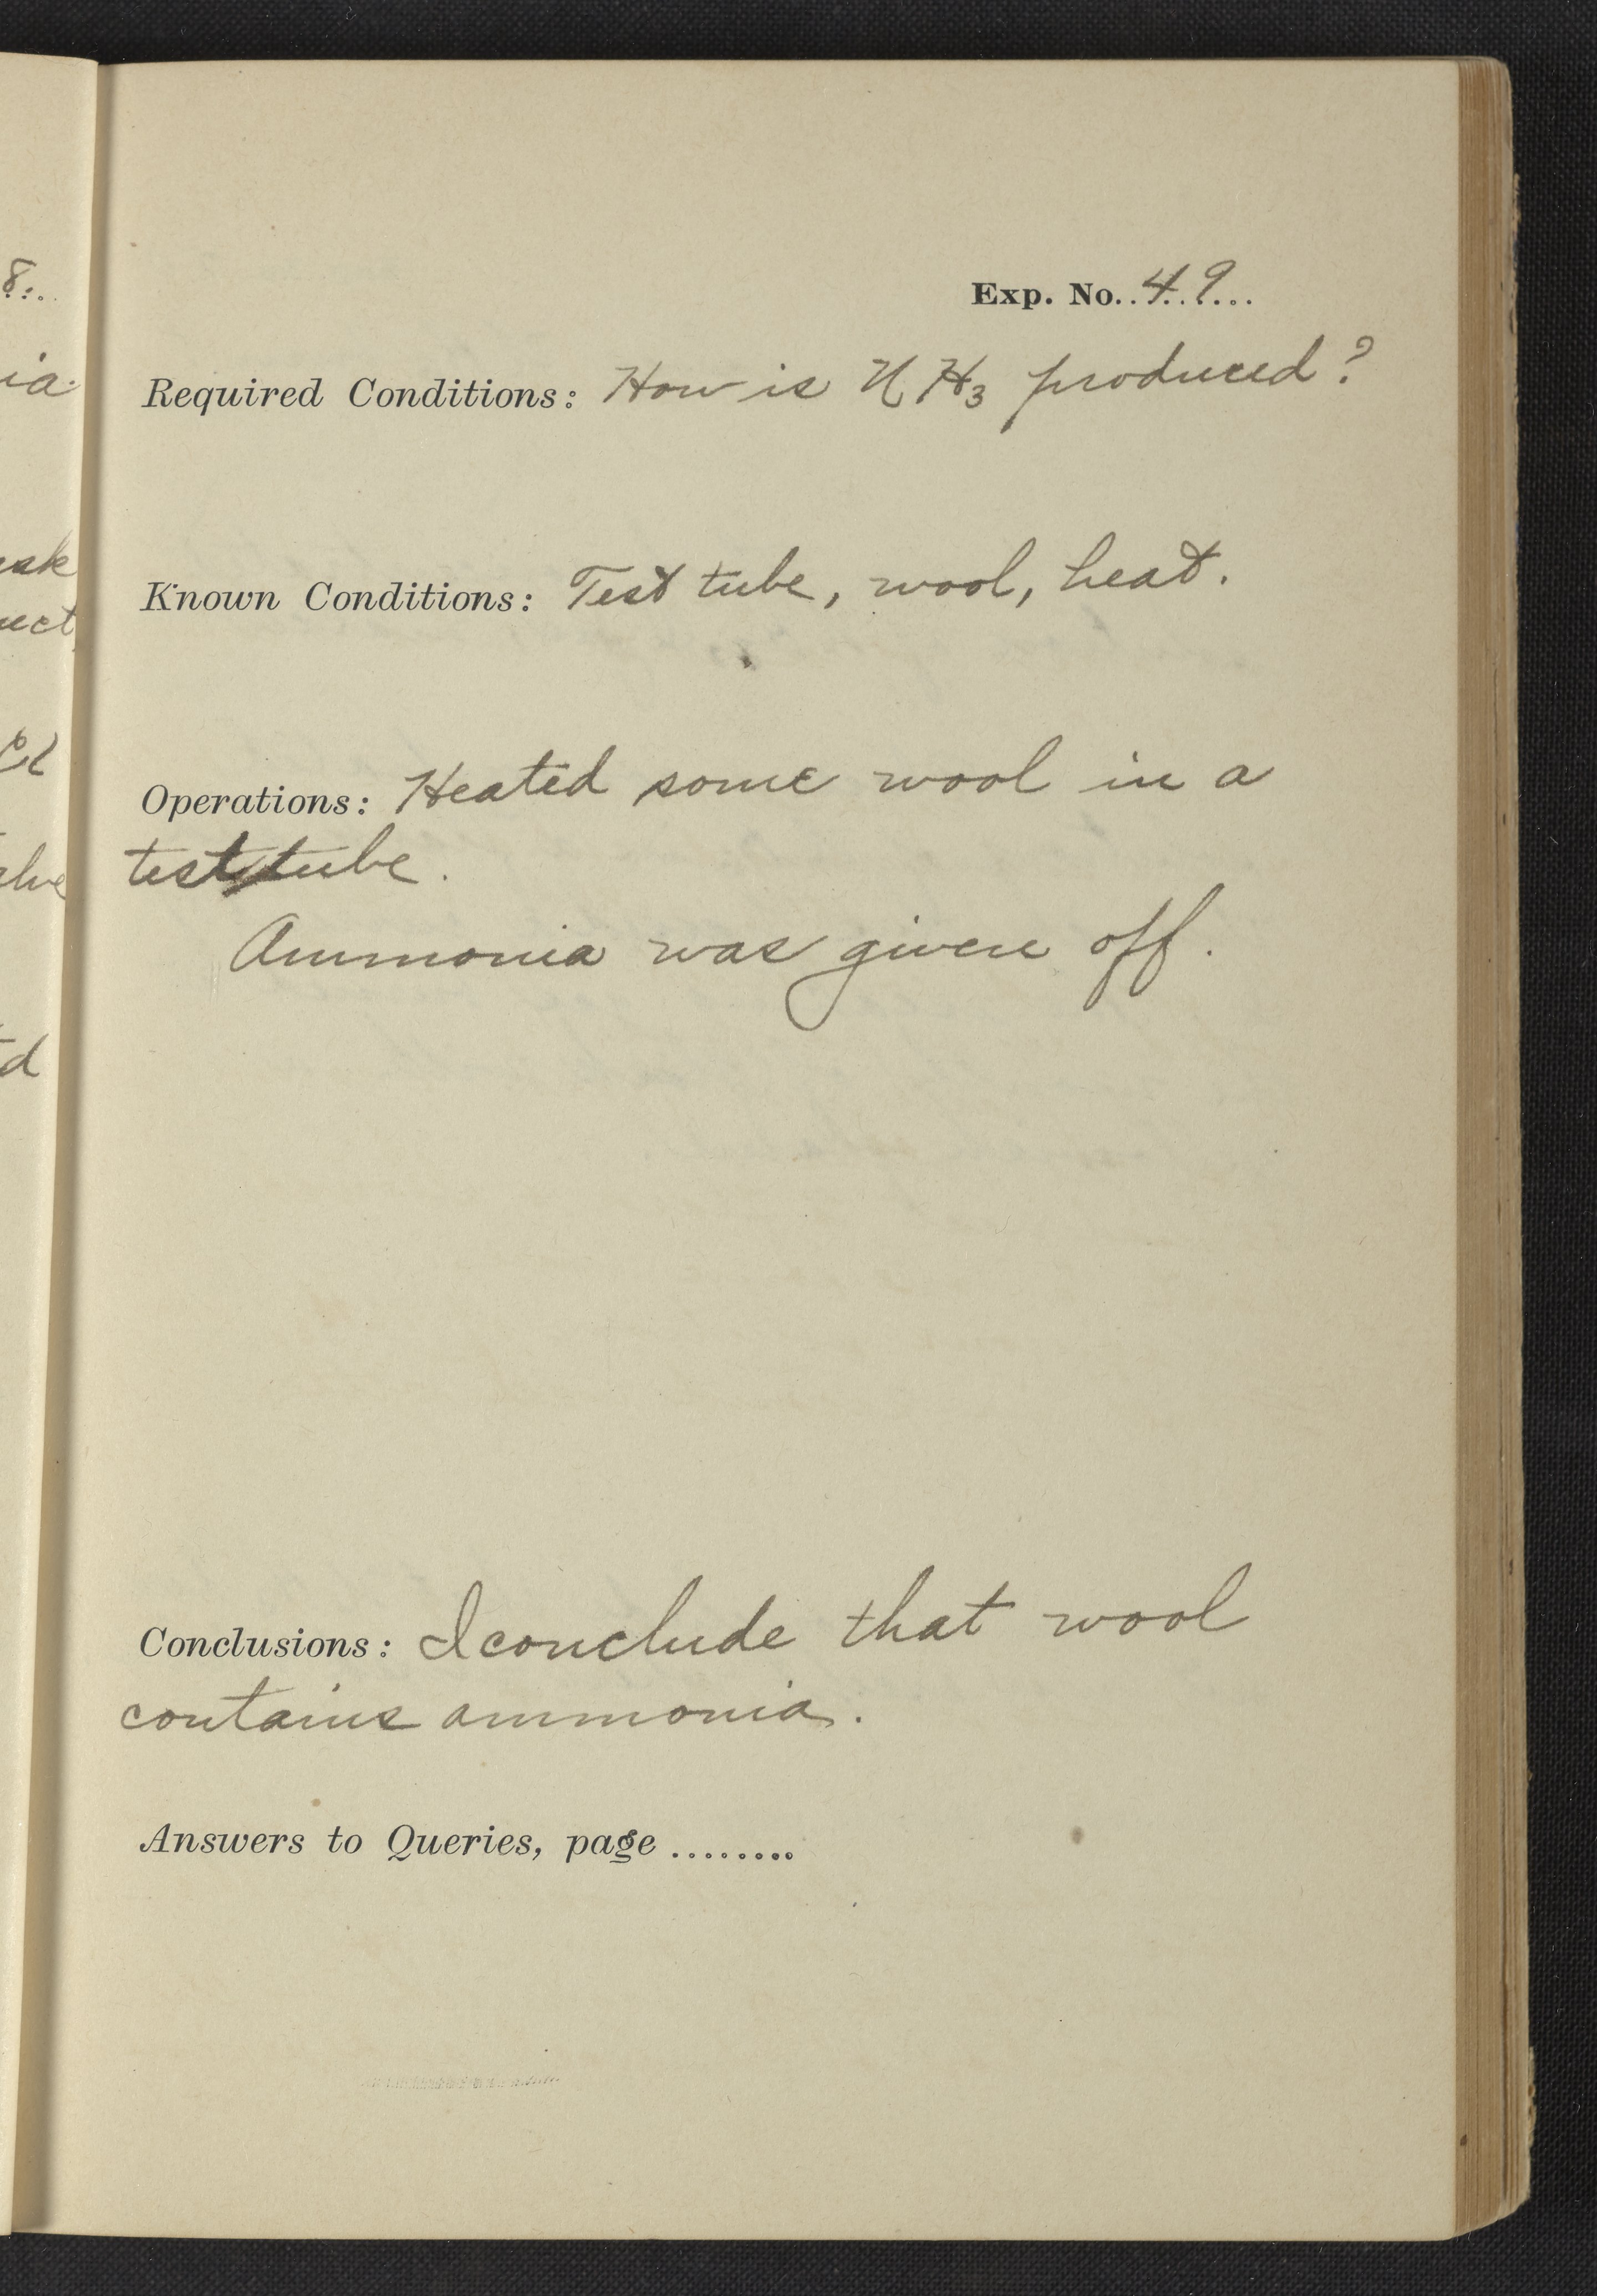 Exp. No. 49
Required Conditions: How is NH3 produced?
Known Conditions: Test tube, wool, heat.
Operations: Heated some wool in a
test tube.
Ammonia was given off.
Conclusions: I conclude that wool
contains ammonia.
Answers to Queries, page ........